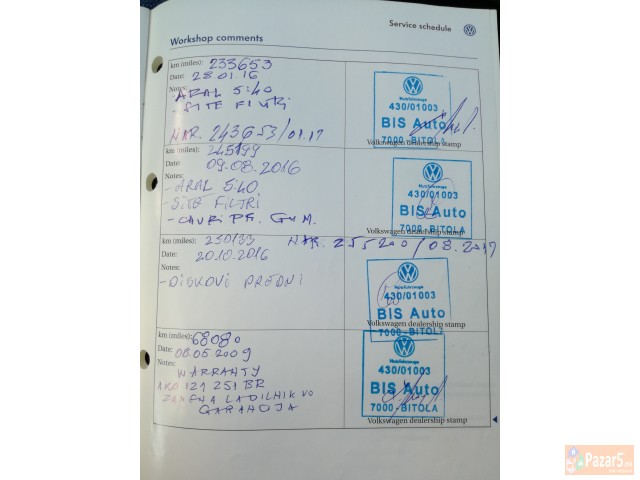 Service schedule
Workshop comments
km (miles): 233653
Date: 28.01.16
Notes:
- ARAL 5:40
- SITE FILTRI
NAR. 243653/01.17
Nutzfahrzeuge
430/01003
BIS Auto
7000-BITOLA
Volkswagen dealership stamp
km (miles): 245199
Date: 09.08.2016
Notes:
- ARAL 5:40
- SITE FILTRI
-
430/01003
BIS Auto
7000-BITOLA
Volkswagen dealership stamp
km (miles): 250133
NAR. 255200/08.2017
Date: 20.10.2016
Notes:
- DISKOVI PREDNI
Nutzfahrzeuge
430/01003
BIS Auto
7000-BITOLA
Volkswagen dealership stamp
km (miles): 68080
Date: 06.05.2009
Notes:
WARRANTY
121 251 BR
ZAMENA LADILNIK VO
GARANCIJA
Nutzfahrzeuge
430/01003
BIS Auto
7000-BITOLA
Volkswagen dealership stamp
Pazar5